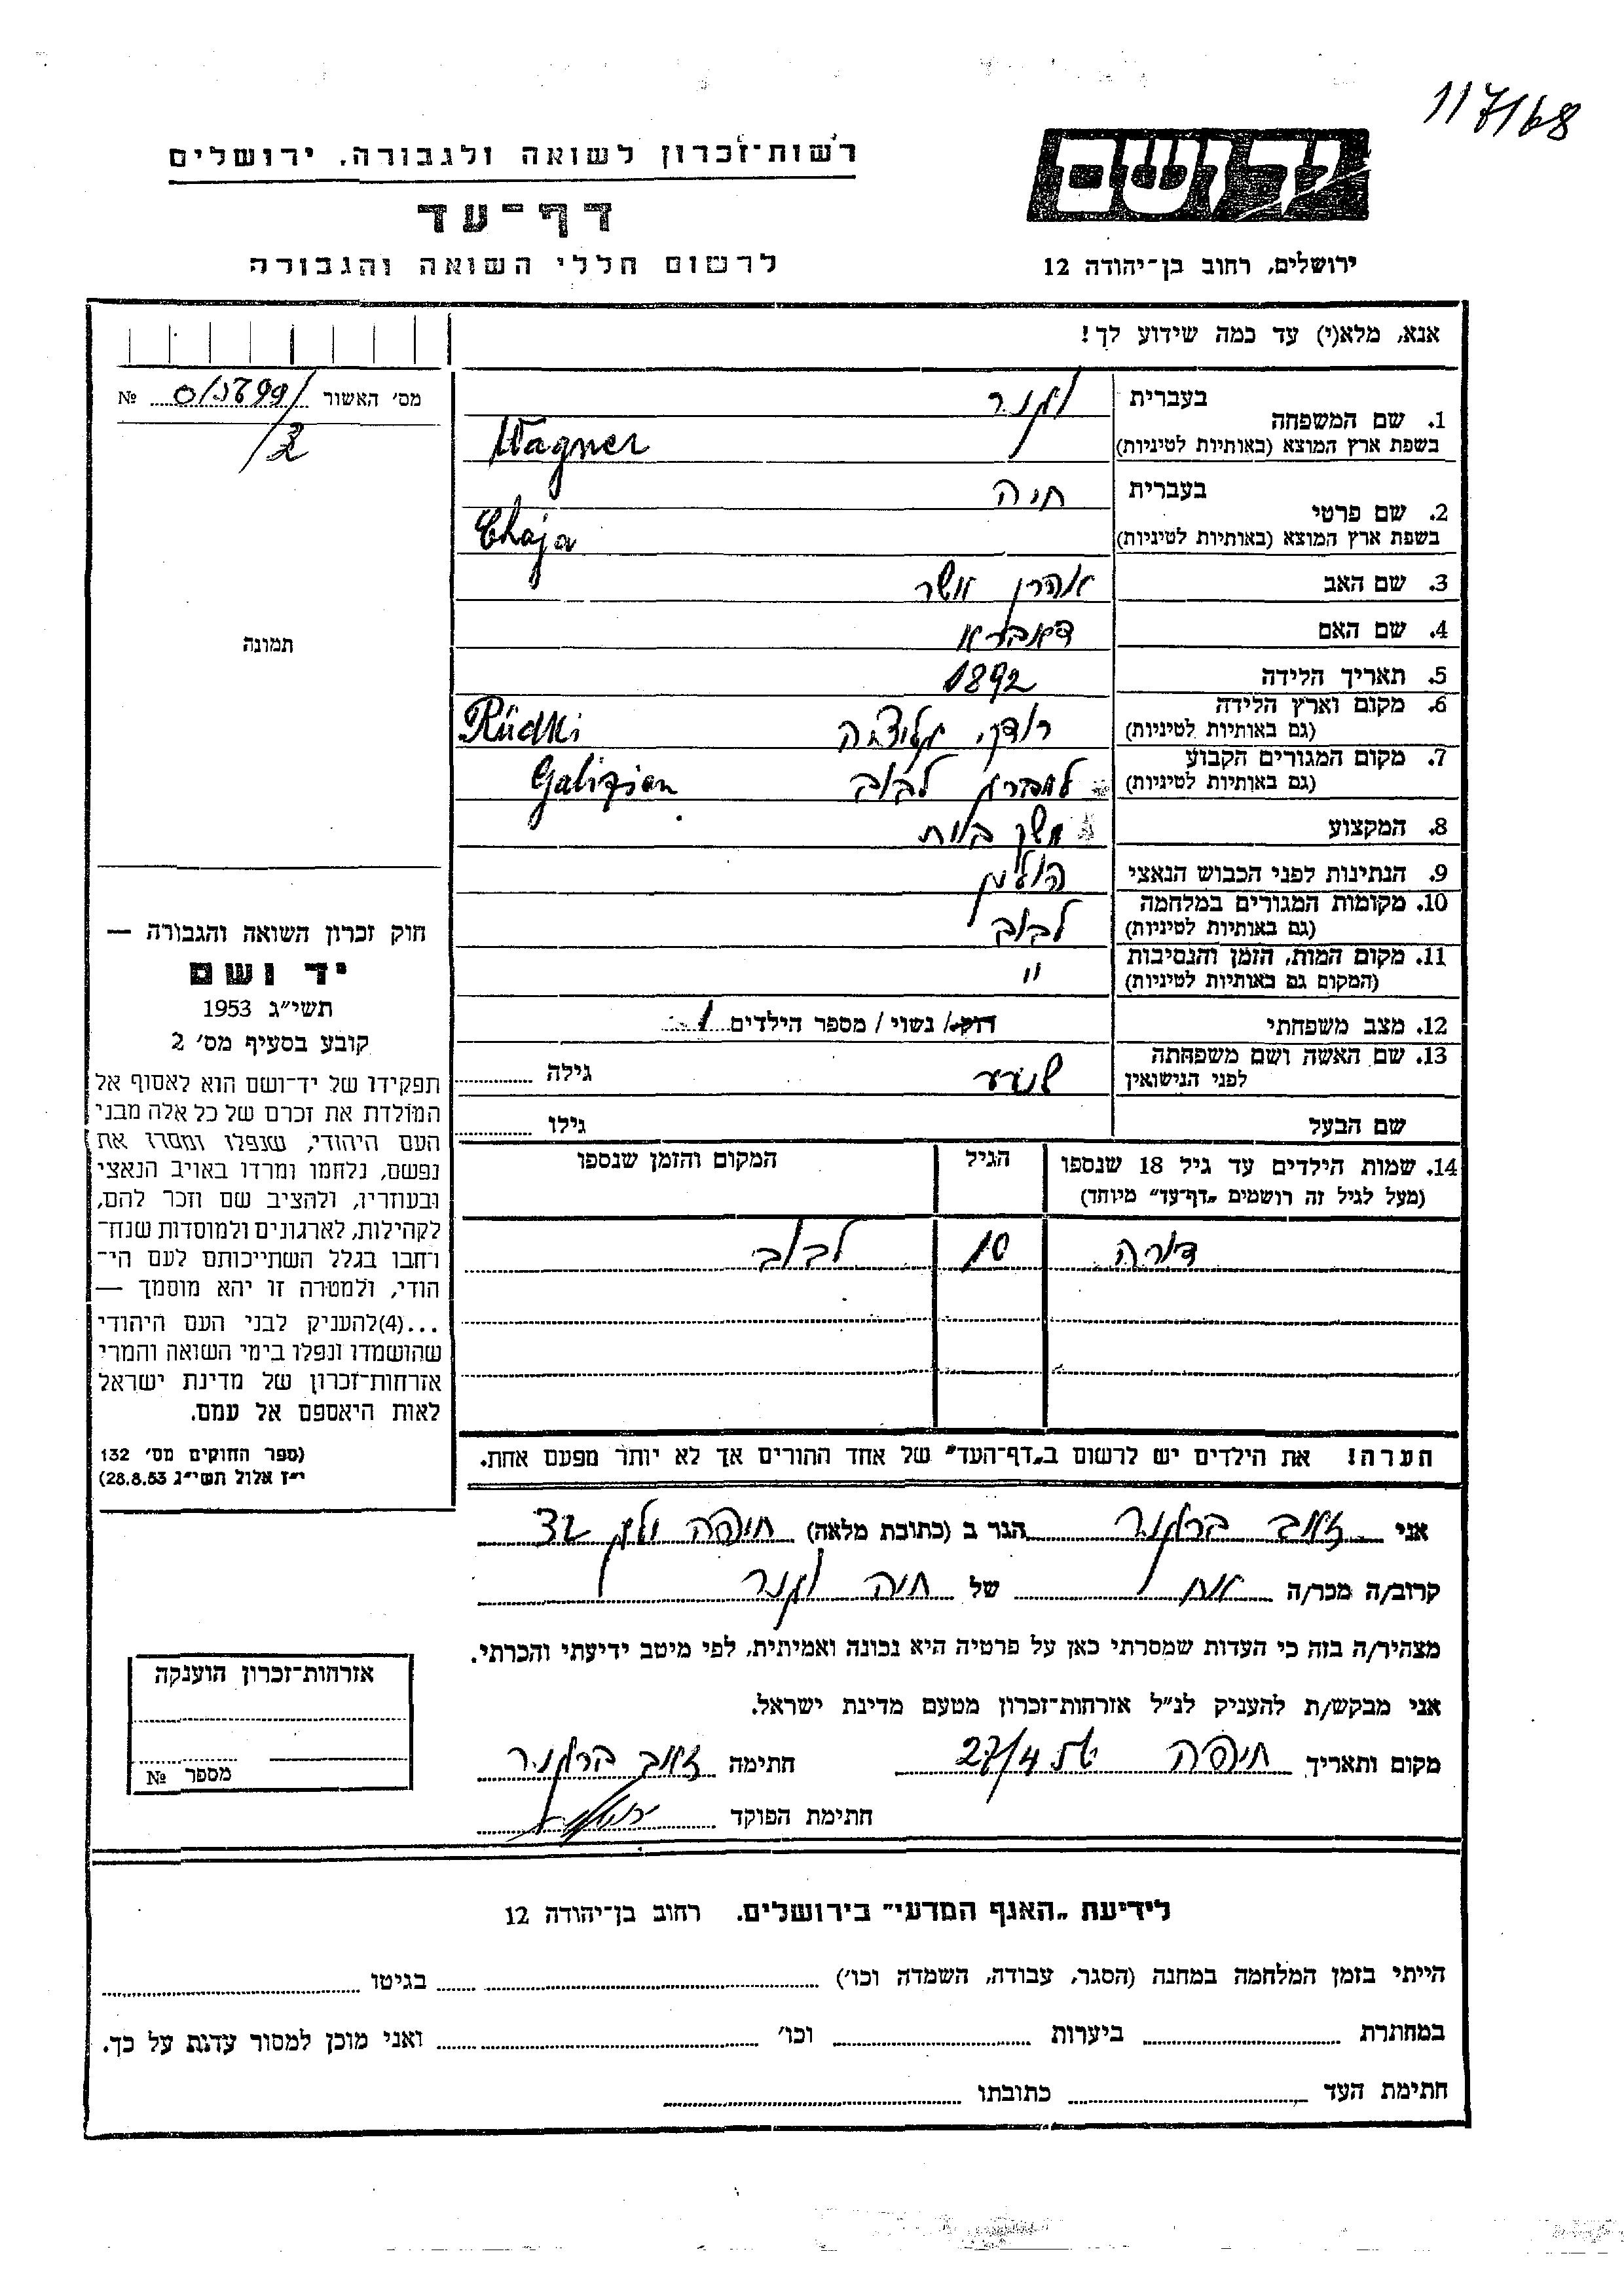 117/68
יד ושם
רשות־זכרון לשואה ולגבורה, ירושלים
דף־עד
ירושלים, רחוב בן־יהודה 12
לרשום חללי השואה והגבורה
אנא, מלא(י) עד כמה שידוע לך!
מס׳ האשור №
1. שם המשפחה
בעברית
וגנר
בשפת ארץ המוצא (באותיות לטיניות)
Wagner
2. שם פרטי
בעברית
חיה
בשפת ארץ המוצא (באותיות לטיניות)
Chaja
3. שם האב אהרן אשר
4. שם האם
5. תאריך הלידה 1892
6. מקום וארץ הלידה
(גם באותיות לטיניות)
רודקי גליציה Rüdki
7. מקום המגורים הקבוע
(גם באותיות לטיניות)
לבוב Galizien
8. המקצוע משק בית
9. הנתינות לפני הכבוש הנאצי פולין
10. מקומות המגורים במלחמה
(גם באותיות לטיניות)
לבוב
11. מקום המות, הזמן והנסיבות
(המקום גם באותיות לטיניות)
"
12. מצב משפחתי רוק / נשוי / מספר הילדים 1
13. שם האשה ושם משפחתה
לפני הנישואין
גילה
שם הבעל
גילו
14. שמות הילדים עד גיל 18 שנספו
(מעל לגיל זה רושמים „דף־עד" מיוחד)
הגיל
המקום והזמן שנספו
דורה 10 לבוב
הערה! את הילדים יש לרשום ב„דף־העד" של אחד ההורים אך לא יותר מפעם אחת.
תמונה
חוק זכרון השואה והגבורה —
יד ושם
תשי״ג 1953
קובע בסעיף מס׳ 2
תפקידו של יד־ושם הוא לאסוף אל
המולדת את זכרם של כל אלה מבני
העם היהודי, שנפלו ומסרו את
נפשם, נלחמו ומרדו באויב הנאצי
ובעוזריו, ולהציב שם וזכר להם,
לקהילות, לארגונים ולמוסדות שנח־
רחבו בגלל השתייכותם לעם הי־
הודי, ולמטרה זו יהא מוסמך —
...(4)להעניק לבני העם היהודי
שהושמדו ונפלו בימי השואה והמרי
אזרחות־זכרון של מדינת ישראל
לאות היאספם אל עמם.
(ספר החוקים מס׳ 132
י״ז אלול תשי״ג 28.8.53)
אני זאב ברגנר הגר ב (כתובת מלאה) חיפה
קרוב/ה מכר/ה אח של חיה וגנר
מצהיר/ה בזה כי העדות שמסרתי כאן על פרטיה היא נכונה ואמיתית, לפי מיטב ידיעתי והכרתי.
אני מבקש/ת להעניק לנ״ל אזרחות־זכרון מטעם מדינת ישראל.
מקום ותאריך חיפה 27/4 חתימה זאב ברגנר
חתימת הפוקד
אזרחות־זכרון הוענקה
מספר №
לידיעת „האגף המדעי" בירושלים. רחוב בן־יהודה 12
הייתי בזמן המלחמה במחנה (הסגר, עבודה, השמדה וכו׳) בגיטו
במחתרת ביערות וכו׳ ואני מוכן למסור עדות על כך.
חתימת העד כתובתו